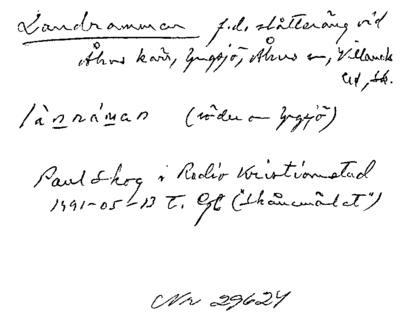 Landramman f.d. slåtteräng vid
Åhus kärr, Yngsjö, Åhus sn, Villands
hd, Sk.
lànnráman (söder om Yngsjö)
Paul Skog i Radio Kristianstad
1991-05-13 T. Egl ("Skånemålet")
Nr 29624